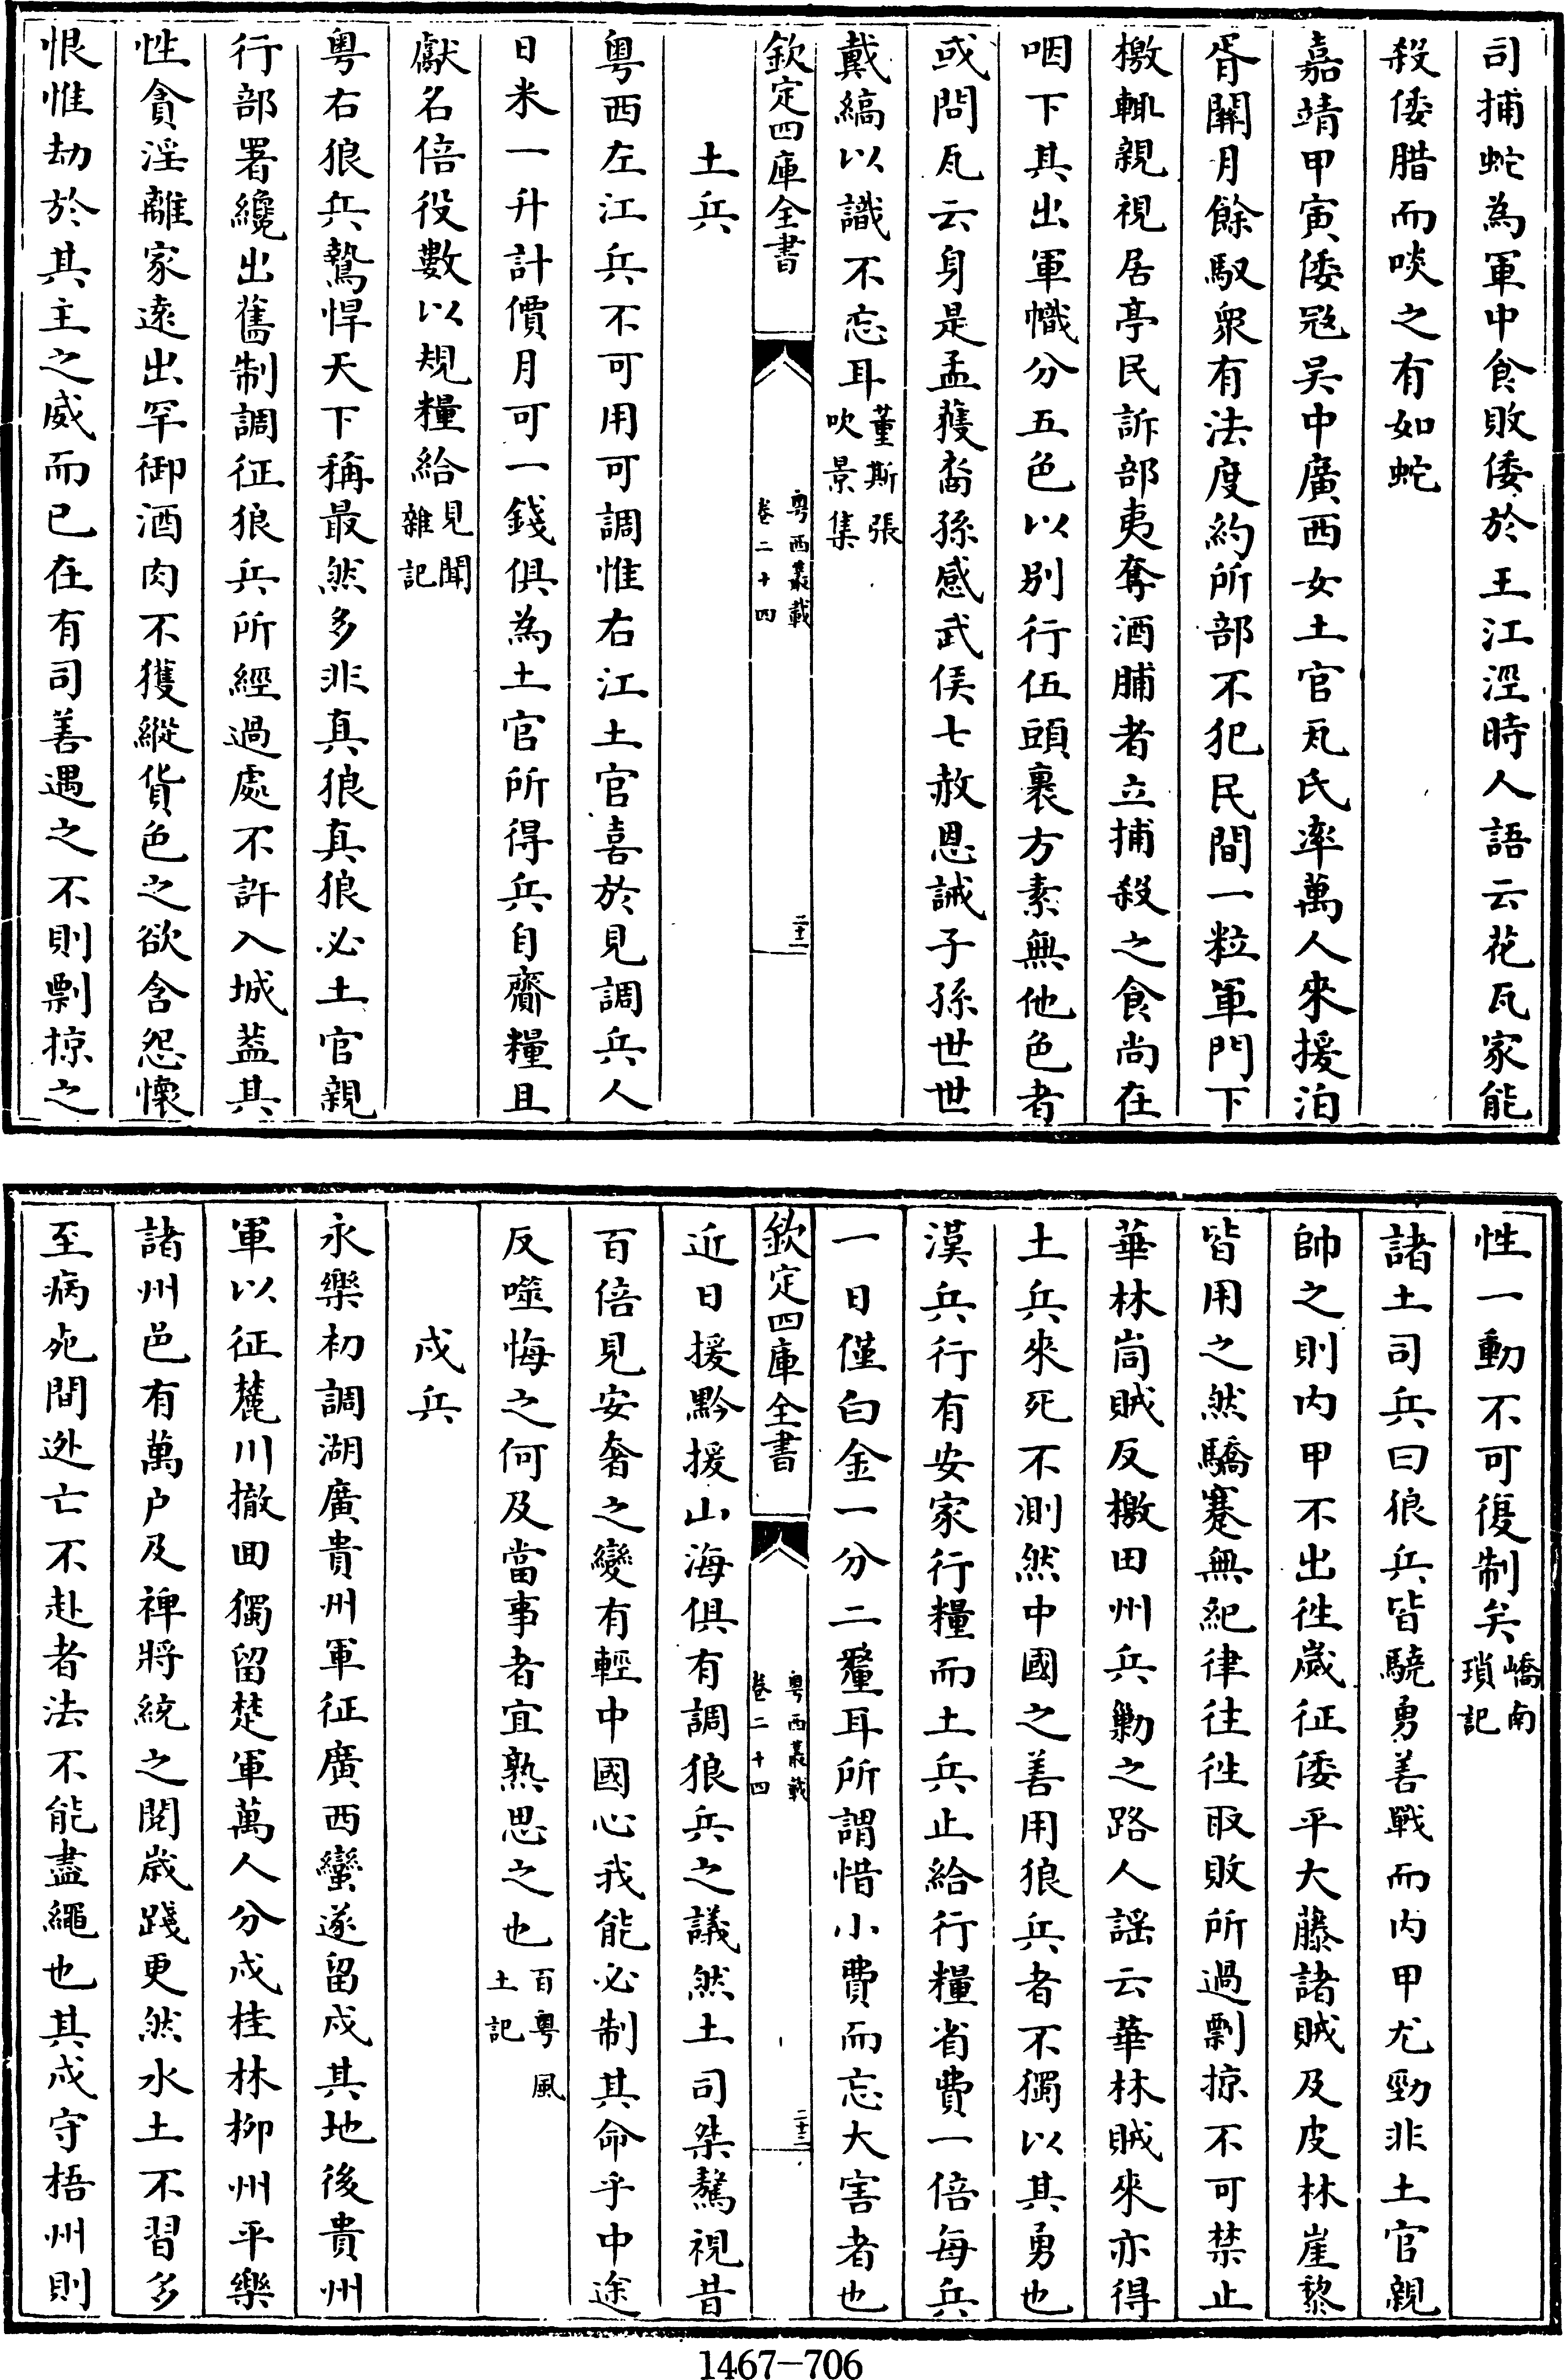 司捕蛇為軍中食敗倭於王江涇時人語云花瓦家能
殺倭腊而啖之有如蛇
嘉靖甲寅倭冦吳中廣西女土官瓦氏率萬人來援泊
胥關月餘馭衆有法度約所部不犯民間一粒軍門下
檄輒親視居亭民訴部夷奪酒脯者立捕殺之食尚在
咽下其出軍幟分五色以别行伍頭裹方素無他色者
或問瓦云身是孟獲裔孫感武侯七赦恩誡子孫世世
戴縞以識不忘耳董斯張吹景集
欽定四庫全書
粤西叢載
卷二十四
二十二
土兵
粤西左江兵不可用可調惟右江土官喜於見調兵人
日米一升計價月可一錢俱為土官所得兵自齎糧且
獻名倍役數以規糧給見聞雜記
粤右狼兵鷙悍天下稱最然多非真狼真狼必土官親
行部署纔出舊制調征狼兵所經過處不許入城葢其
性貪淫離家遠出罕御酒肉不獲縱貨色之欲含怨懷
恨惟劫於其主之威而已在有司善遇之不則剽掠之
性一動不可復制矣嶠南瑣記
諸土司兵曰狼兵皆驍勇善戰而内甲尤勁非土官親
帥之則内甲不出徃嵗征倭平大藤諸賊及皮林崖黎
皆用之然驕蹇無紀律往徃取敗所過剽掠不可禁止
華林峝賊反檄田州兵勦之路人謡云華林賊來亦得
土兵來死不測然中國之善用狼兵者不獨以其勇也
漢兵行有安家行糧而土兵止給行糧省費一倍每兵
一日僅白金一分二釐耳所謂惜小費而忘大害者也
欽定四庫全書
粤西叢載
卷二十四
二十三
近日援黔援山海俱有調狼兵之議然土司桀驁視昔
百倍見安奢之變有輕中國心我能必制其命乎中途
反噬悔之何及當事者宜熟思之也百粤風土記
戍兵
永樂初調湖廣貴州軍征廣西蠻遂留戍其地後貴州
軍以征麓川撤回獨留楚軍萬人分戍桂林柳州平樂
諸州邑有萬户及裨將統之閲歲踐更然水土不習多
至病死間逃亡不赴者法不能盡繩也其戍守梧州則
1467—706